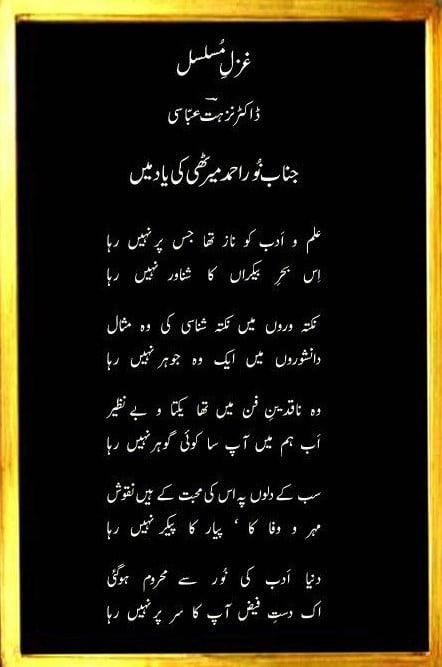 غزلِ مُسلسل
ڈاکٹر نزہتؔ عبّاسی
جناب نُور احمد میرٹھی کی یاد میں
علم و اَدب کو ناز تھا جس پر نہیں رہا
اِس بحرِ بیکراں کا شناور نہیں رہا
نکتہ وروں میں نکتہ شناسی کی وہ مثال
دانشوروں میں ایک وہ جوہر نہیں رہا
وہ ناقدینِ فن میں تھا یکتا و بے نظیر
اَب ہم میں آپ سا کوئی گوہر نہیں رہا
سب کے دلوں پہ اس کی محبت کے ہیں نقوش
مہر و وفا کا ‘ پیار کا پیکر نہیں رہا
دنیا اَدب کی نُور سے محروم ہوگئی
اک دستِ فیض آپ کا سر پر نہیں رہا